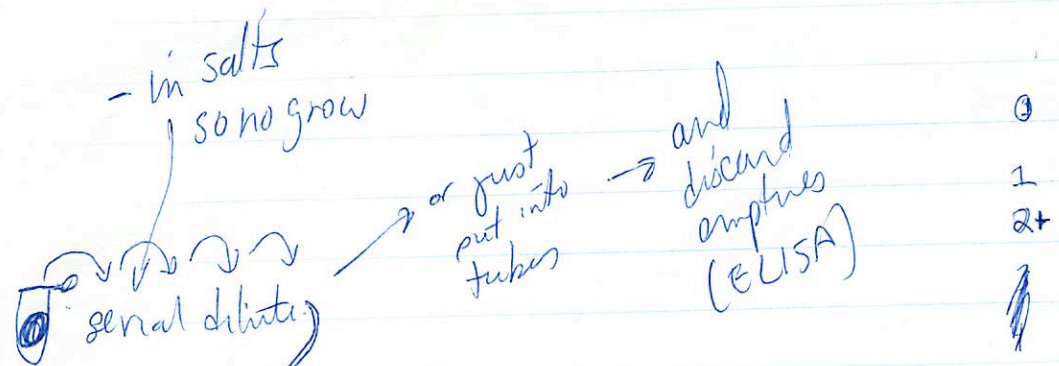 - in salts
so no grow
serial dilute
or just
put into
tubes
and
discard
empties
(ELISA)
0
1
2+